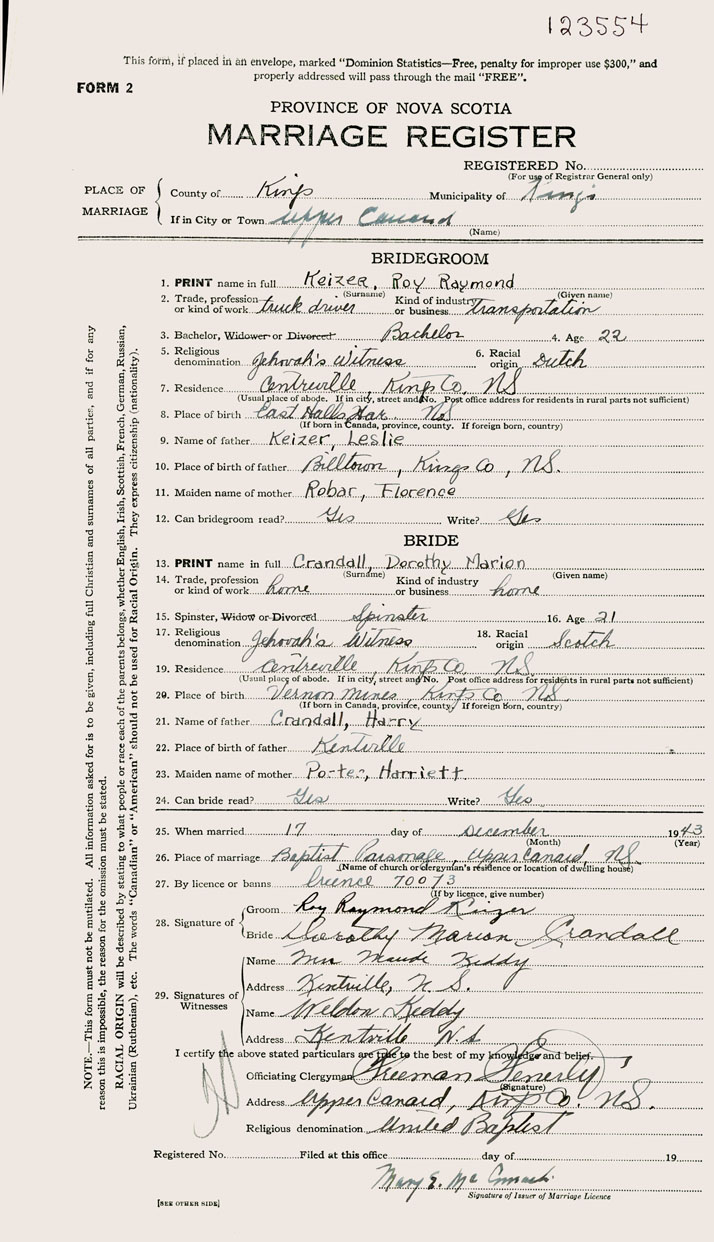 123554
This form, if placed in an envelope, marked "Dominion Statistics—Free, penalty for improper use $300," and
properly addressed will pass through the mail "FREE".
FORM 2
PROVINCE OF NOVA SCOTIA
MARRIAGE REGISTER
REGISTERED No.
(For use of Registrar General only)
PLACE OF MARRIAGE
County of Kings Municipality of Kings
If in City or Town Upper Canard
(Name)
BRIDEGROOM
1. PRINT name in full Keizer, Roy Raymond
(Surname) (Given name)
2. Trade, profession or kind of work truck driver Kind of industry or business transportation
3. Bachelor, Widower or Divorced Bachelor 4. Age 22
5. Religious denomination Jehovah's Witness 6. Racial origin Dutch
7. Residence Centreville, Kings Co, NS
(Usual place of abode. If in city, street and No. Post office address for residents in rural parts not sufficient)
8. Place of birth East Halls Har. NS
(If born in Canada, province, county. If foreign born, country)
9. Name of father Keizer, Leslie
10. Place of birth of father Billtown, Kings Co, NS.
11. Maiden name of mother Robar, Florence
12. Can bridegroom read? Yes Write? Yes
BRIDE
13. PRINT name in full Crandall, Dorothy Marion
(Surname) (Given name)
14. Trade, profession or kind of work home Kind of industry or business home
15. Spinster, Widow or Divorced Spinster 16. Age 21
17. Religious denomination Jehovah's Witness 18. Racial origin Scotch
19. Residence Centreville, Kings Co, NS.
(Usual place of abode. If in city, street and No. Post office address for residents in rural parts not sufficient)
20. Place of birth Vernon Mines, Kings Co NS
(If born in Canada, province, county. If foreign born, country)
21. Name of father Crandall, Harry
22. Place of birth of father Kentville
23. Maiden name of mother Porter, Harriett
24. Can bride read? Yes Write? Yes
25. When married 17 day of December 1943
(Month) (Year)
26. Place of marriage Baptist Parsonage, Upper Canard, NS.
(Name of church or clergyman's residence or location of dwelling house)
27. By licence or banns licence 70073
(If by licence, give number)
28. Signature of
Groom Roy Raymond Keizer
Bride Dorothy Marion Crandall
29. Signatures of Witnesses
Name Mrs Maude Keddy
Address Kentville, N. S.
Name Weldon Keddy
Address Kentville N.S
I certify the above stated particulars are true to the best of my knowledge and belief.
Officiating Clergyman Freeman Fenerty
(Signature)
Address Upper Canard, Kings Co. NS.
Religious denomination United Baptist
Registered No. Filed at this office day of 19
Mary E.
Signature of Issuer of Marriage Licence
[SEE OTHER SIDE]
NOTE.—This form must not be mutilated. All information asked for is to be given, including full Christian and surnames of all parties, and if for any
reason this is impossible, the reason for the omission must be stated.
RACIAL ORIGIN will be described by stating to what people or race each of the parents belongs, whether English, Irish, Scottish, French, German, Russian,
Ukrainian (Ruthenian), etc. The words "Canadian" or "American" should not be used for Racial Origin. They express citizenship (nationality).